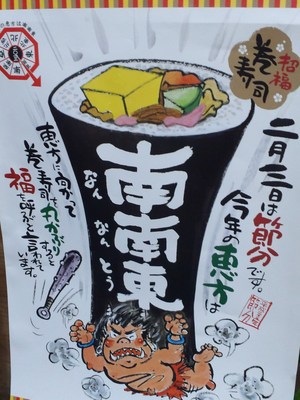 招福
巻寿司
二月三日は節分です。
今年の恵方は
南南東
なんなんとう
恵方に向かって
巻寿司を丸かぶり
すると
福を呼ぶと言われて
います。
節分